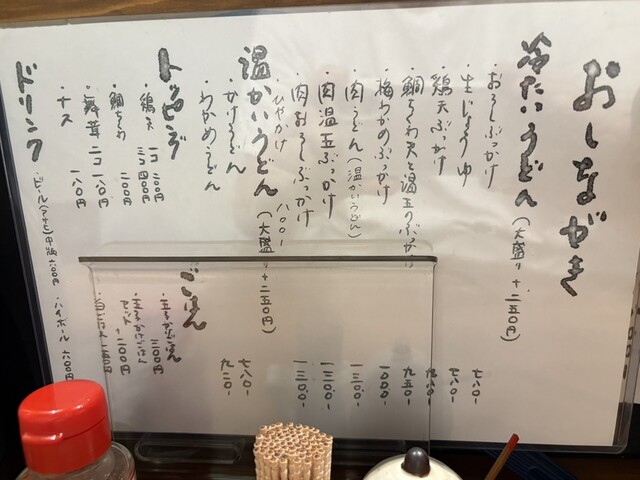 おしながき
冷たいうどん (大盛り+二五〇円)
・おろしぶっかけ 七八〇-
・生じょうゆ 七八〇-
・鶏天ぶっかけ
・鯛ちくわ天と温玉のぶっかけ 九五〇-
・梅わかめぶっかけ 一〇〇〇-
・肉うどん(温かいうどん) 一三〇〇-
・肉温玉ぶっかけ 一三〇〇-
・肉おろしぶっかけ 一三〇〇-
・ひやかけ 八〇〇-
温かいうどん (大盛り+二五〇円)
・かけうどん 七八〇-
・わかめうどん 九二〇-
トッピング
・鶏天 一コ 二〇〇円
三コ 四〇〇円
・鯛ちくわ 二〇〇円
・舞茸 二コ 一八〇円
・ナス 一八〇円
ごはん
・玉子かけごはん 三〇〇円
セット +二〇〇円
ドリンク
・ビール(アサヒ)中瓶 六〇〇円 ・ハイボール 六〇〇円